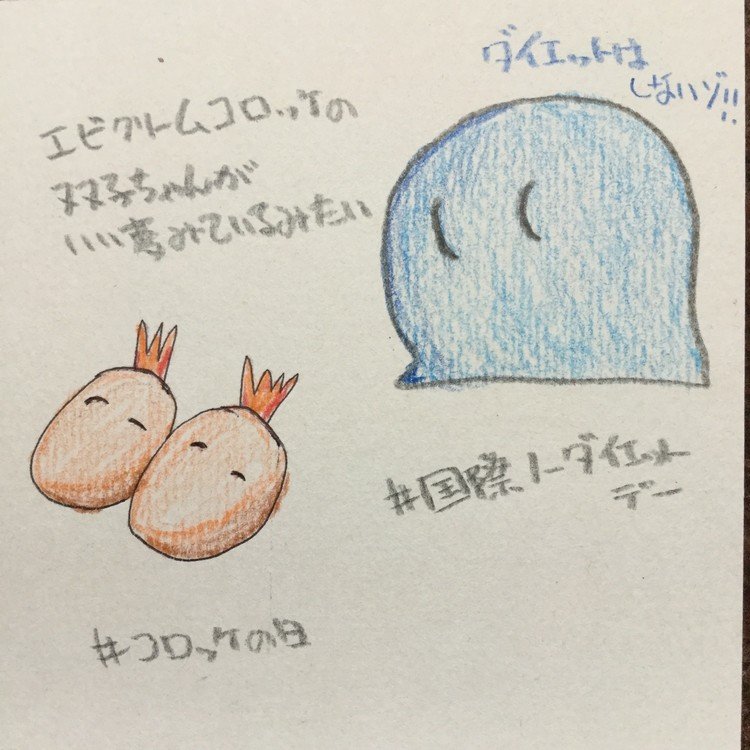 エビクリームコロッケの
双子ちゃんが
いい夢みているみたい
ダイエットは
しないゾ!!
#国際ノーダイエット
デー
#コロッケの日